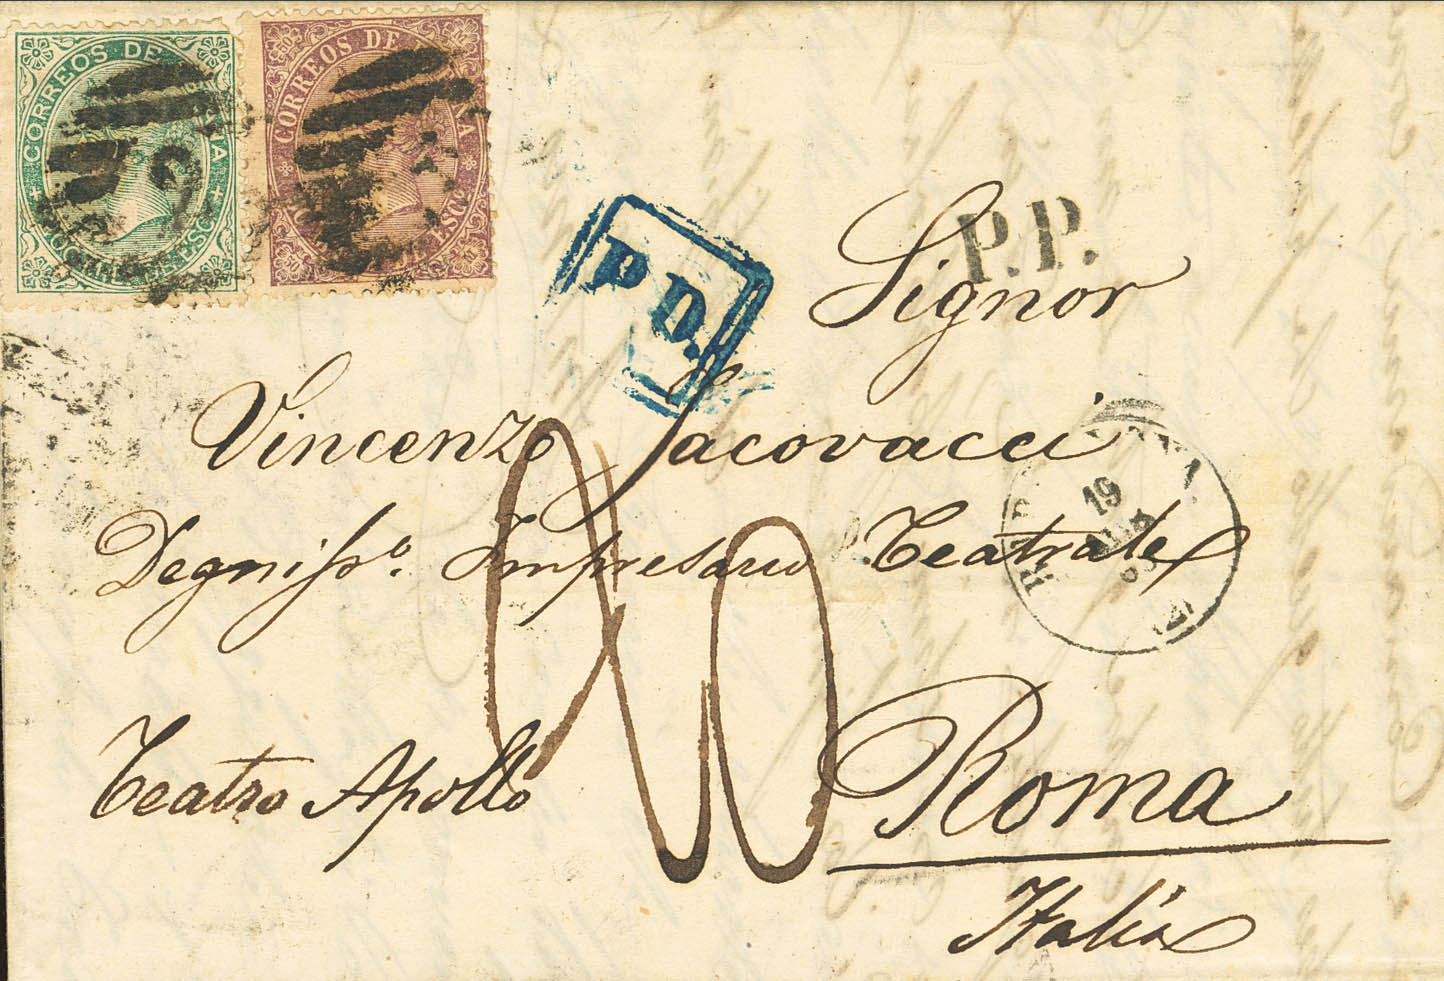 CORREOS DE
CORREOS DE
P.D.
P.P.
Signor
Vincenzo Jacovacci
Degnisso. Impresario Teatrale
19
Teatro Apollo
Roma
Italia